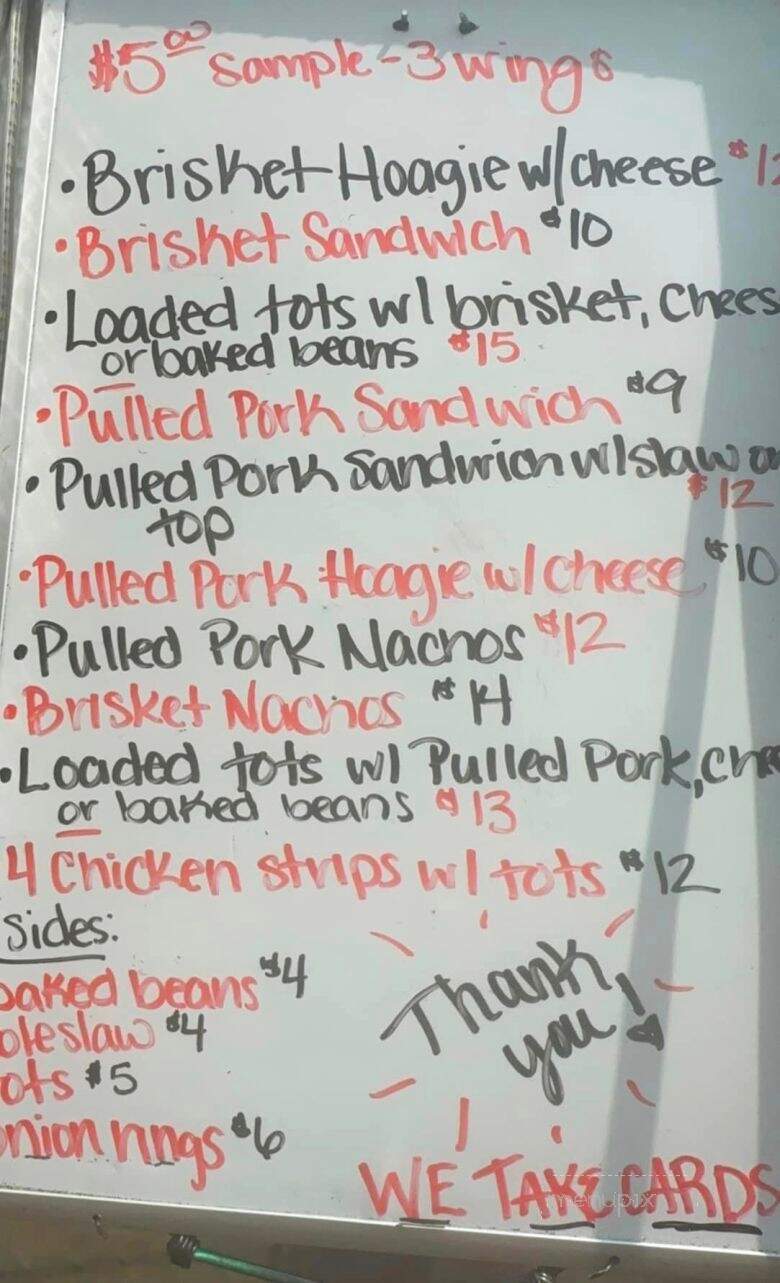 $5.00 sample - 3 wings
• Brisket Hoagie w/ cheese $12
• Brisket Sandwich $10
• Loaded tots w/ brisket, chees
or baked beans $15
• Pulled Pork Sandwich $9
• Pulled Pork Sandwich w/ slaw on
$12
top
• Pulled Pork Hoagie w/ cheese $10
• Pulled Pork Nachos $12
• Brisket Nachos $14
• Loaded tots w/ Pulled Pork, che
or baked beans $13
4 Chicken strips w/ tots $12
Sides:
baked beans $4
oleslaw $4
ots $5
onion rings $6
Thank
you!
WE TAKE CARDS
menupix